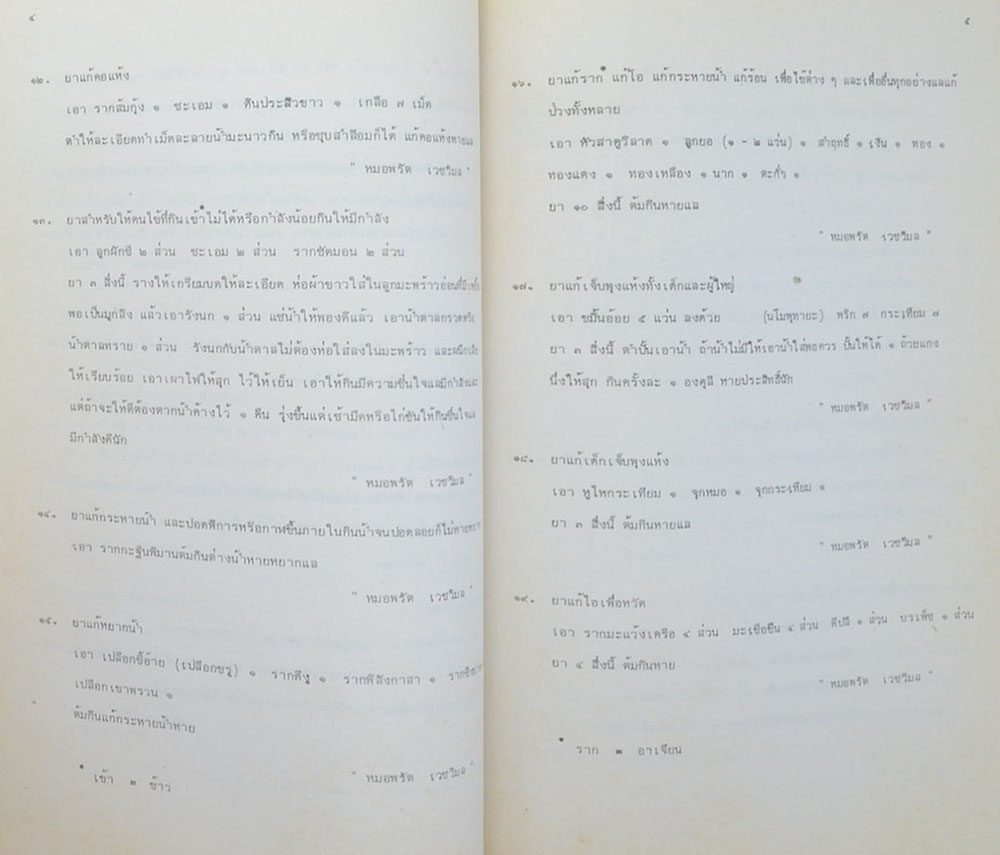 ๔
๑๒. ยาแก้คอแห้ง
เอา รากส้มกุ้ง ๑ ชะเอม ๑ ดินประสิวขาว ๑ เกลือ ๗ เม็ด
ตำให้ละเอียดทำเม็ดละลายน้ำมะนาวกิน หรือชุบสำลีอมก็ได้ แก้คอแห้งหายแล
" หมอพรัด เวชวิมล "
๑๓. ยาสำหรับให้คนไข้ที่กินเข้า*ไม่ได้หรือกำลังน้อยกินให้มีกำลัง
เอา ลูกผักชี ๒ ส่วน ชะเอม ๒ ส่วน รากขัดมอน ๒ ส่วน
ยา ๓ สิ่งนี้ รางให้เกรียมบดให้ละเอียด ห่อผ้าขาวใส่ในลูกมะพร้าวอ่อนที่มีเนื้อ
พอเป็นมูกลิง แล้วเอารังนก ๑ ส่วน แช่น้ำให้พองดีแล้ว เอาน้ำตาลกรวดหรือ
น้ำตาลทราย ๑ ส่วน รังนกกับน้ำตาลไม่ต้องห่อใส่ลงในมะพร้าว และผนึก
ให้เรียบร้อย เอาเผาไฟให้สุก ไว้ให้เย็น เอาให้กินมีความชื่นใจแลมีกำลังแล
แต่ถ้าจะให้ดีต้องตากน้ำค้างไว้ ๑ คืน รุ่งขึ้นแต่เช้ามืดหรือไก่ขันให้กินชื่นใจแล
มีกำลังดีนัก
" หมอพรัด เวชวิมล "
๑๔. ยาแก้กระหายน้ำ และปอดพิการหรือกาฬขึ้นภายในกินน้ำจนปอดลอยก็ไม่หาย
เอา รากกะฐินพิมานต้มกินต่างน้ำหายหยากแล
" หมอพรัด เวชวิมล "
๑๕. ยาแก้หยากน้ำ
เอา เปลือกขี้อ้าย (เปลือกขรู) ๑ รากตีงู ๑ รากพิลังกาสา ๑
เปลือกเขาพรวน ๑
ต้มกินแก้กระหายน้ำหาย
" หมอพรัด เวชวิมล "
* เข้า = ข้าว
๕
๑๖. ยาแก้ราก* แก้ไอ แก้กระหายน้ำ แก้ร้อน เพื่อไข้ต่าง ๆ และเพื่ออื่นทุกอย่างแลแก้
ป่วงทั้งหลาย
เอา หัวสาคูวิลาด ๑ ลูกยอ (๑ - ๒ แว่น) ๑ สำฤทธิ์ ๑ เงิน ๑ ทอง ๑
ทองแดง ๑ ทองเหลือง ๑ นาก ๑ ตะกั่ว ๑
ยา ๑๐ สิ่งนี้ ต้มกินหายแล
" หมอพรัด เวชวิมล "
๑๗. ยาแก้เจ็บพุงแห้งทั้งเด็กและผู้ใหญ่
เอา ขมิ้นอ้อย ๕ แว่น ลงด้วย (นโมพุทายะ) พริก ๗ กระเทียม ๗
ยา ๓ สิ่งนี้ ตำปั้นเอาน้ำ ถ้าน้ำไม่มีให้เอาน้ำใส่พอควร ปั้นให้ได้ ๑ ถ้วยแกง
นึ่งให้สุก กินครั้งละ ๑ องคุลี หายประสิทธิ์นัก
" หมอพรัด เวชวิมล "
๑๘. ยาแก้เด็กเจ็บพุงแห้ง
เอา หูไหกระเทียม ๑ จุกหมอ ๑ จุกกระเทียม ๑
ยา ๓ สิ่งนี้ ต้มกินหายแล
" หมอพรัด เวชวิมล "
๑๙. ยาแก้ไอเพื่อหวัด
เอา รากมะแว้งเครือ ๔ ส่วน มะเขือขืน ๔ ส่วน ดีปลี ๑ ส่วน บรเพ็ช ๑ ส่วน
ยา ๔ สิ่งนี้ ต้มกินหาย
" หมอพรัด เวชวิมล "
* ราก = อาเจียน